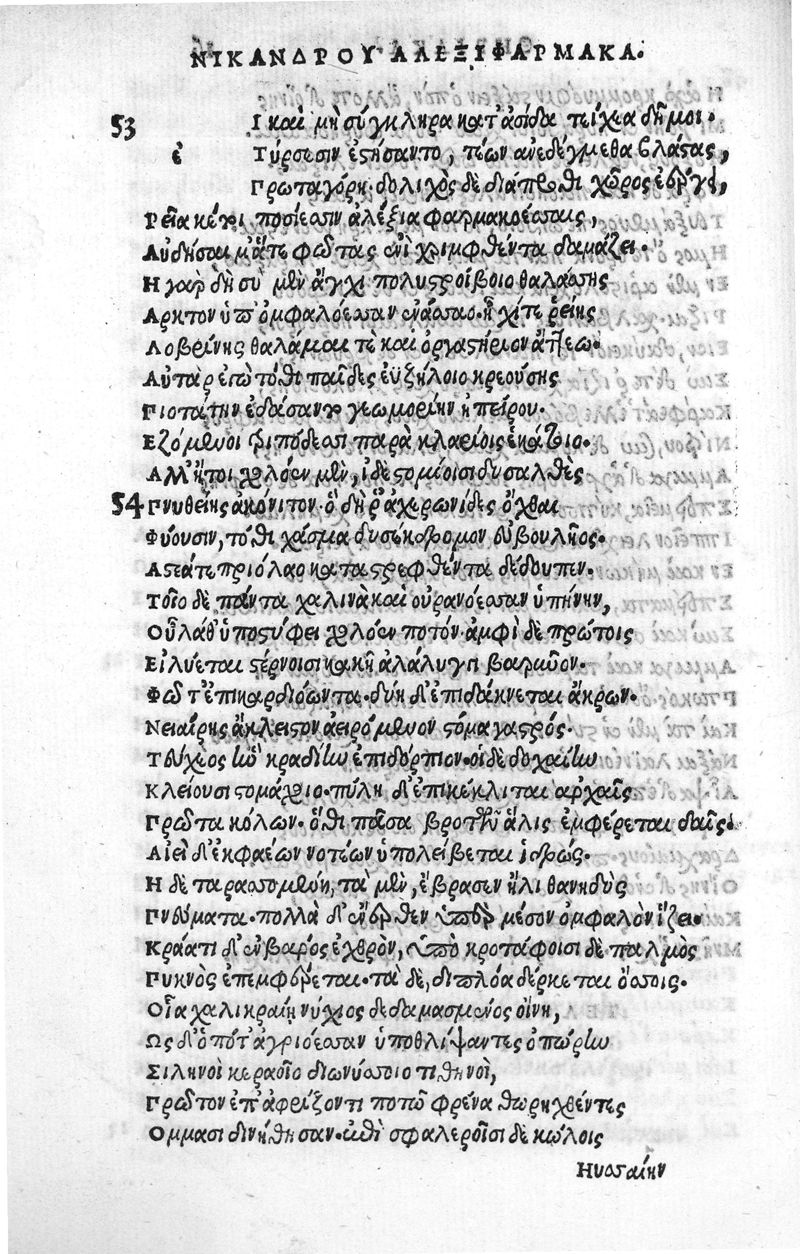 ΝΙΚΑΝΔΡΟΥ ΑΛΕΞΙΦΑΡΜΑΚΑ.
53 Ι καὶ μὴ σύγκληρα κατ' ἀσίδα τείχεα δῆμοι·
ἐ Τύρσεσιν ἐστήσαντο, τέων ἀνεδέγμεθα βλάστας,
Πρωταγόρη· δολιχὸς δὲ διάπροθι χῶρος ἐέργει,
Ρεῖά κέ τοι ποσίεσσιν ἀλέξια φαρμακοέσσαις,
Αὐδήσαιμ' ἅτε φῶτας ἐνιχριμφθέντα δαμάζει.
Η γὰρ δὴ σὺ μὲν ἄγχι πολυστροίβοιο θαλάσσης
Αρκτον ὑπ' ὀμφαλόεσσαν ἐνάσσαο· ἧχί τε ῥείης
Λοβρίνης θαλάμαι τὲ καὶ ὀργαστήριον ἄττεω.
Αὐτὰρ ἐγὼ τόθι παῖδες ἐϋζήλοιο κρεούσης
Πιοτάτην ἐδάσαντο γεωμορίην ἠπείρου.
Εζόμενοι τριπόδεσσι παρὰ κλαρίοις ἑκάτοιο.
Αλλ' ἤτοι χολόεν μὲν, ἰδὲ στομίοισι δυσαλθὲς
54 Πνυθείης ἀκόνιτον· ὃ δή ῥ' ἀχερωνίδες ὄχθαι
Φύουσιν, τόθι χάσμα δυσέκδρομον εὐβουλῆος.
Αστεά τε πριόλαο καταστρεφθέντα δέδουπεν.
Τοῖο δὲ πάντα χαλινὰ καὶ οὐρανόεσσαν ὑπήνην,
Οὖλά θ' ὑποστύφει χολόεν ποτόν· ἀμφὶ δὲ πρώτοις
Εἰλύεται στέρνοισι κακῇ ἀλάλυγγι βαρῦνον.
Φῶτ' ἐπικαρδιόωντα· δύῃ δ' ἐπιδάκνεται ἄκρον.
Νειαίρης ἄκλειστον ἀειρόμενον στόμα γαστρός.
Τεύχεος ἣν κραδίην ἐπιδόρπιον· οἱ δὲ δοχαίην
Κλείουσι στομάχοιο· πύλη δ' ἐπικέκλιται ἀρχαῖς
Πρῶτα κόλων· ὅθι πᾶσα βροτῶν ἅλις ἐμφέρεται δαίς.
Αἰεὶ δ' ἐκ φαέων νοτέων ὑπολείβεται ἱδρώς.
Η δὲ ταρασσομένη, τὰ μὲν, ἔβρασεν ἤλιθα νηδὺς
Πνεύματα· πολλὰ δ' ἔνερθεν ὑπὲρ μέσον ὀμφαλὸν ἵζει.
Κράατι δ' ἐν βάρος ἐχθρὸν, ὑπὸ κροτάφοισι δὲ παλμὸς
Πυκνὸς ἐπεμφέρεται· τὰ δὲ, διπλόα δέρκεται ὄσσοις.
Οἷα χαλικραίῃ νύχιος δεδαμασμένος οἴνῃ,
Ως δ' ὁπότ' ἀγριόεσσαν ὑποθλίψαντες ὀπώρην
Σιληνοὶ κεραοῖο διωνύσοιο τιθηνοὶ,
Πρῶτον ἐπ' ἀφρίζοντι ποτῷ φρένα θωρηχθέντες
Ομμασι δινήθησαν· ἐπὶ σφαλεροῖσι δὲ κώλοις
Ηυσσαίην